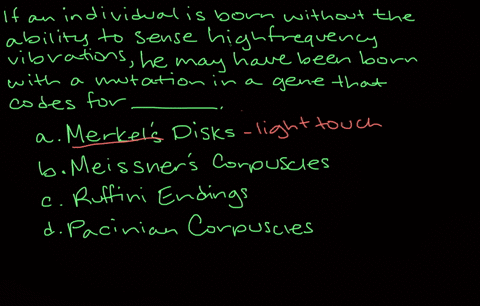 If an individual is born without the
ability to sense highfrequency
vibrations, he may have been born
with a mutation in a gene that
codes for ________.
a. Merkel's Disks - light touch
b. Meissner's Corpuscles
c. Ruffini Endings
d. Pacinian Corpuscles